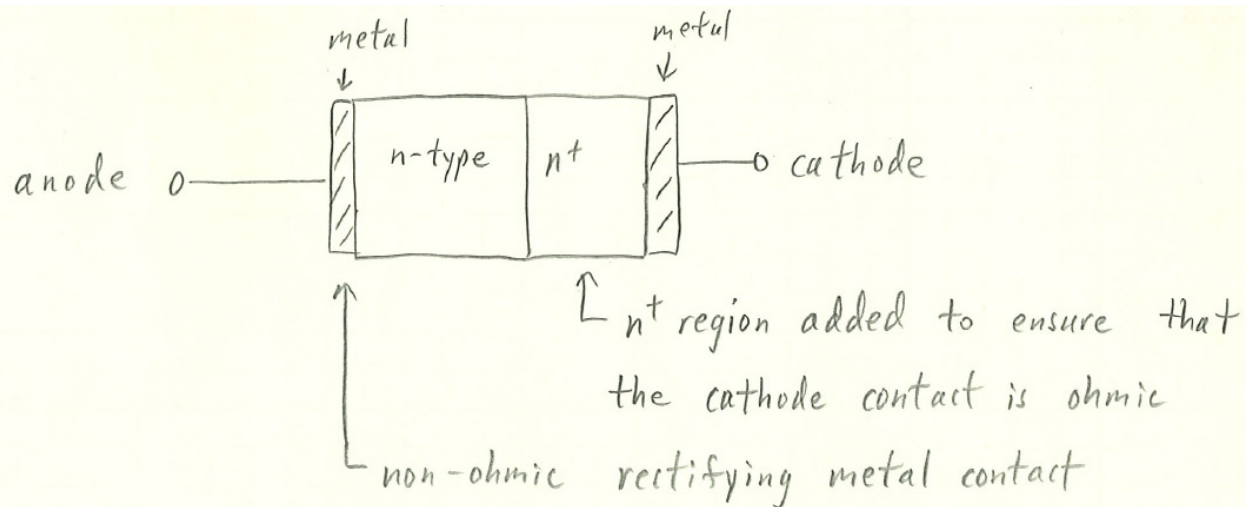 metal
metal
anode
n-type
n⁺
cathode
n⁺ region added to ensure that
the cathode contact is ohmic
non-ohmic rectifying metal contact